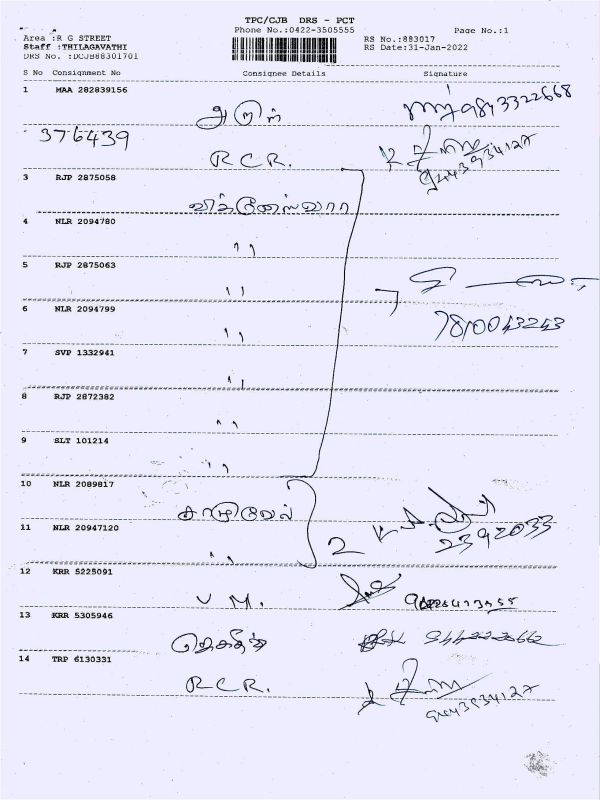 TPC/CJB DRS - PCT
Phone No.:0422-3505555
Page No.:1
Area :R G STREET
Staff :THILAGAVATHI
DRS No. :DCJB88301701
RS No.:883017
RS Date:31-Jan-2022
S No Consignment No Consignee Details Signature
1 MAA 282839156
அருள் 9843322668
376439
R C R. 9443934127
3 RJP 2875058
விக்னேஸ்வரா
4 NLR 2094780
,,
5 RJP 2875063
,,
6 NLR 2094799
7810043243
,,
7 SVP 1332941
,,
8 RJP 2872382
,,
9 SLT 101214
,,
10 NLR 2089817
சாமுவேல்
11 NLR 20947120
,, 2 2392033
12 KRR 5225091
V M.
13 KRR 5305946
14 TRP 6130331
R C R. 9443934127